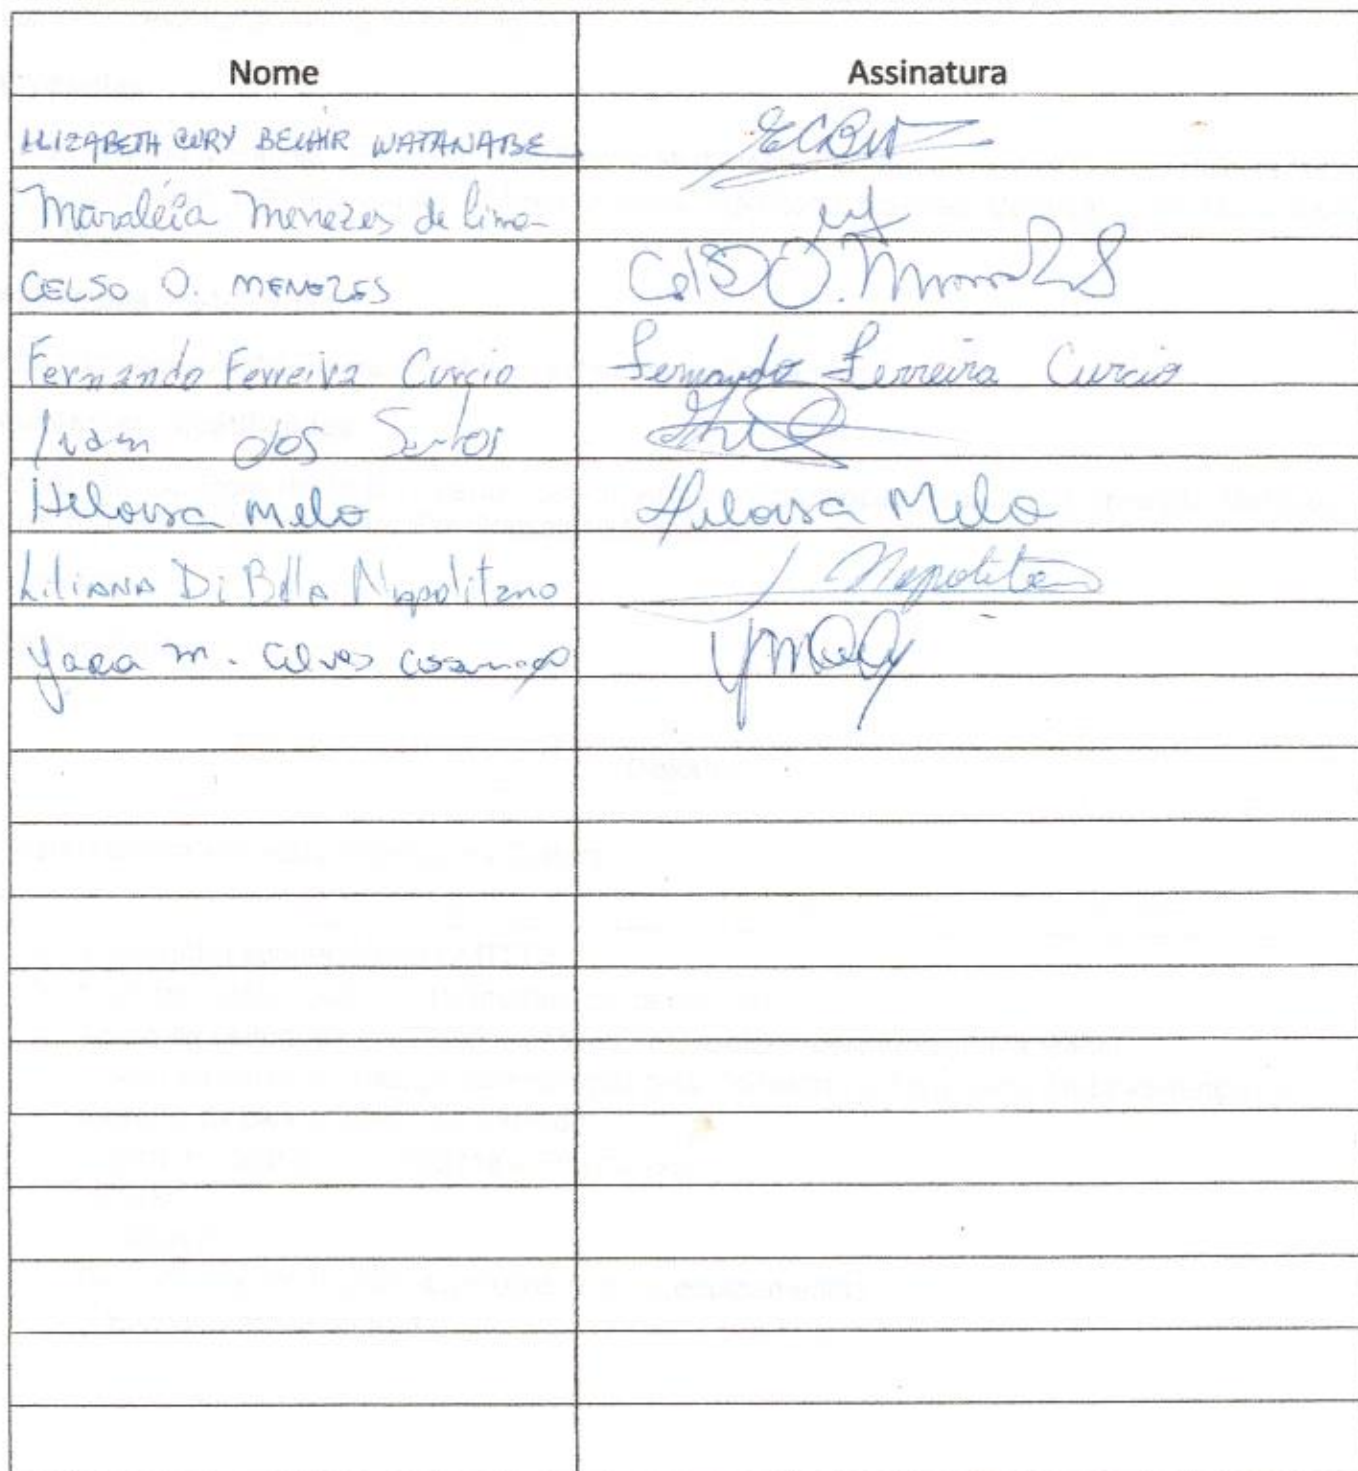 Nome Assinatura
ELIZABETH CURY BECHIR WATANABE ECBW
Maraléia Menezes de Lima
CELSO O. MENEZES Celso O. Menezes
Fernando Ferreira Curcio Fernando Ferreira Curcio
Ivam dos Santos
Heloisa Melo Heloisa Melo
Liliana Di Bella Napolitano Napolitano
Yara M. Alves